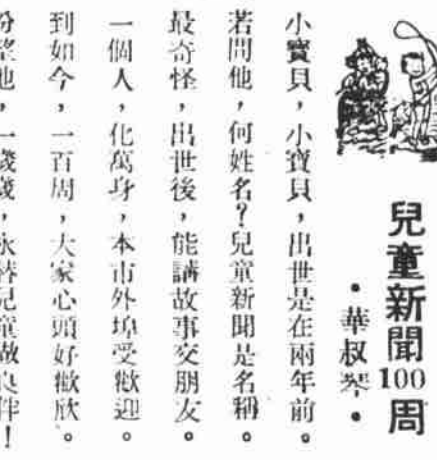 兒童新聞100周
•華叔琴•
小寶貝,小寶貝,出世是在兩年前。
若問他,何姓名?兒童新聞是名稱。
最奇怪,出世後,能講故事交朋友。
一個人,化萬身,本市外埠受歡迎。
到如今,一百周,大家心頭好歡欣。
盼望他,一歲歲,永替兒童做良伴!